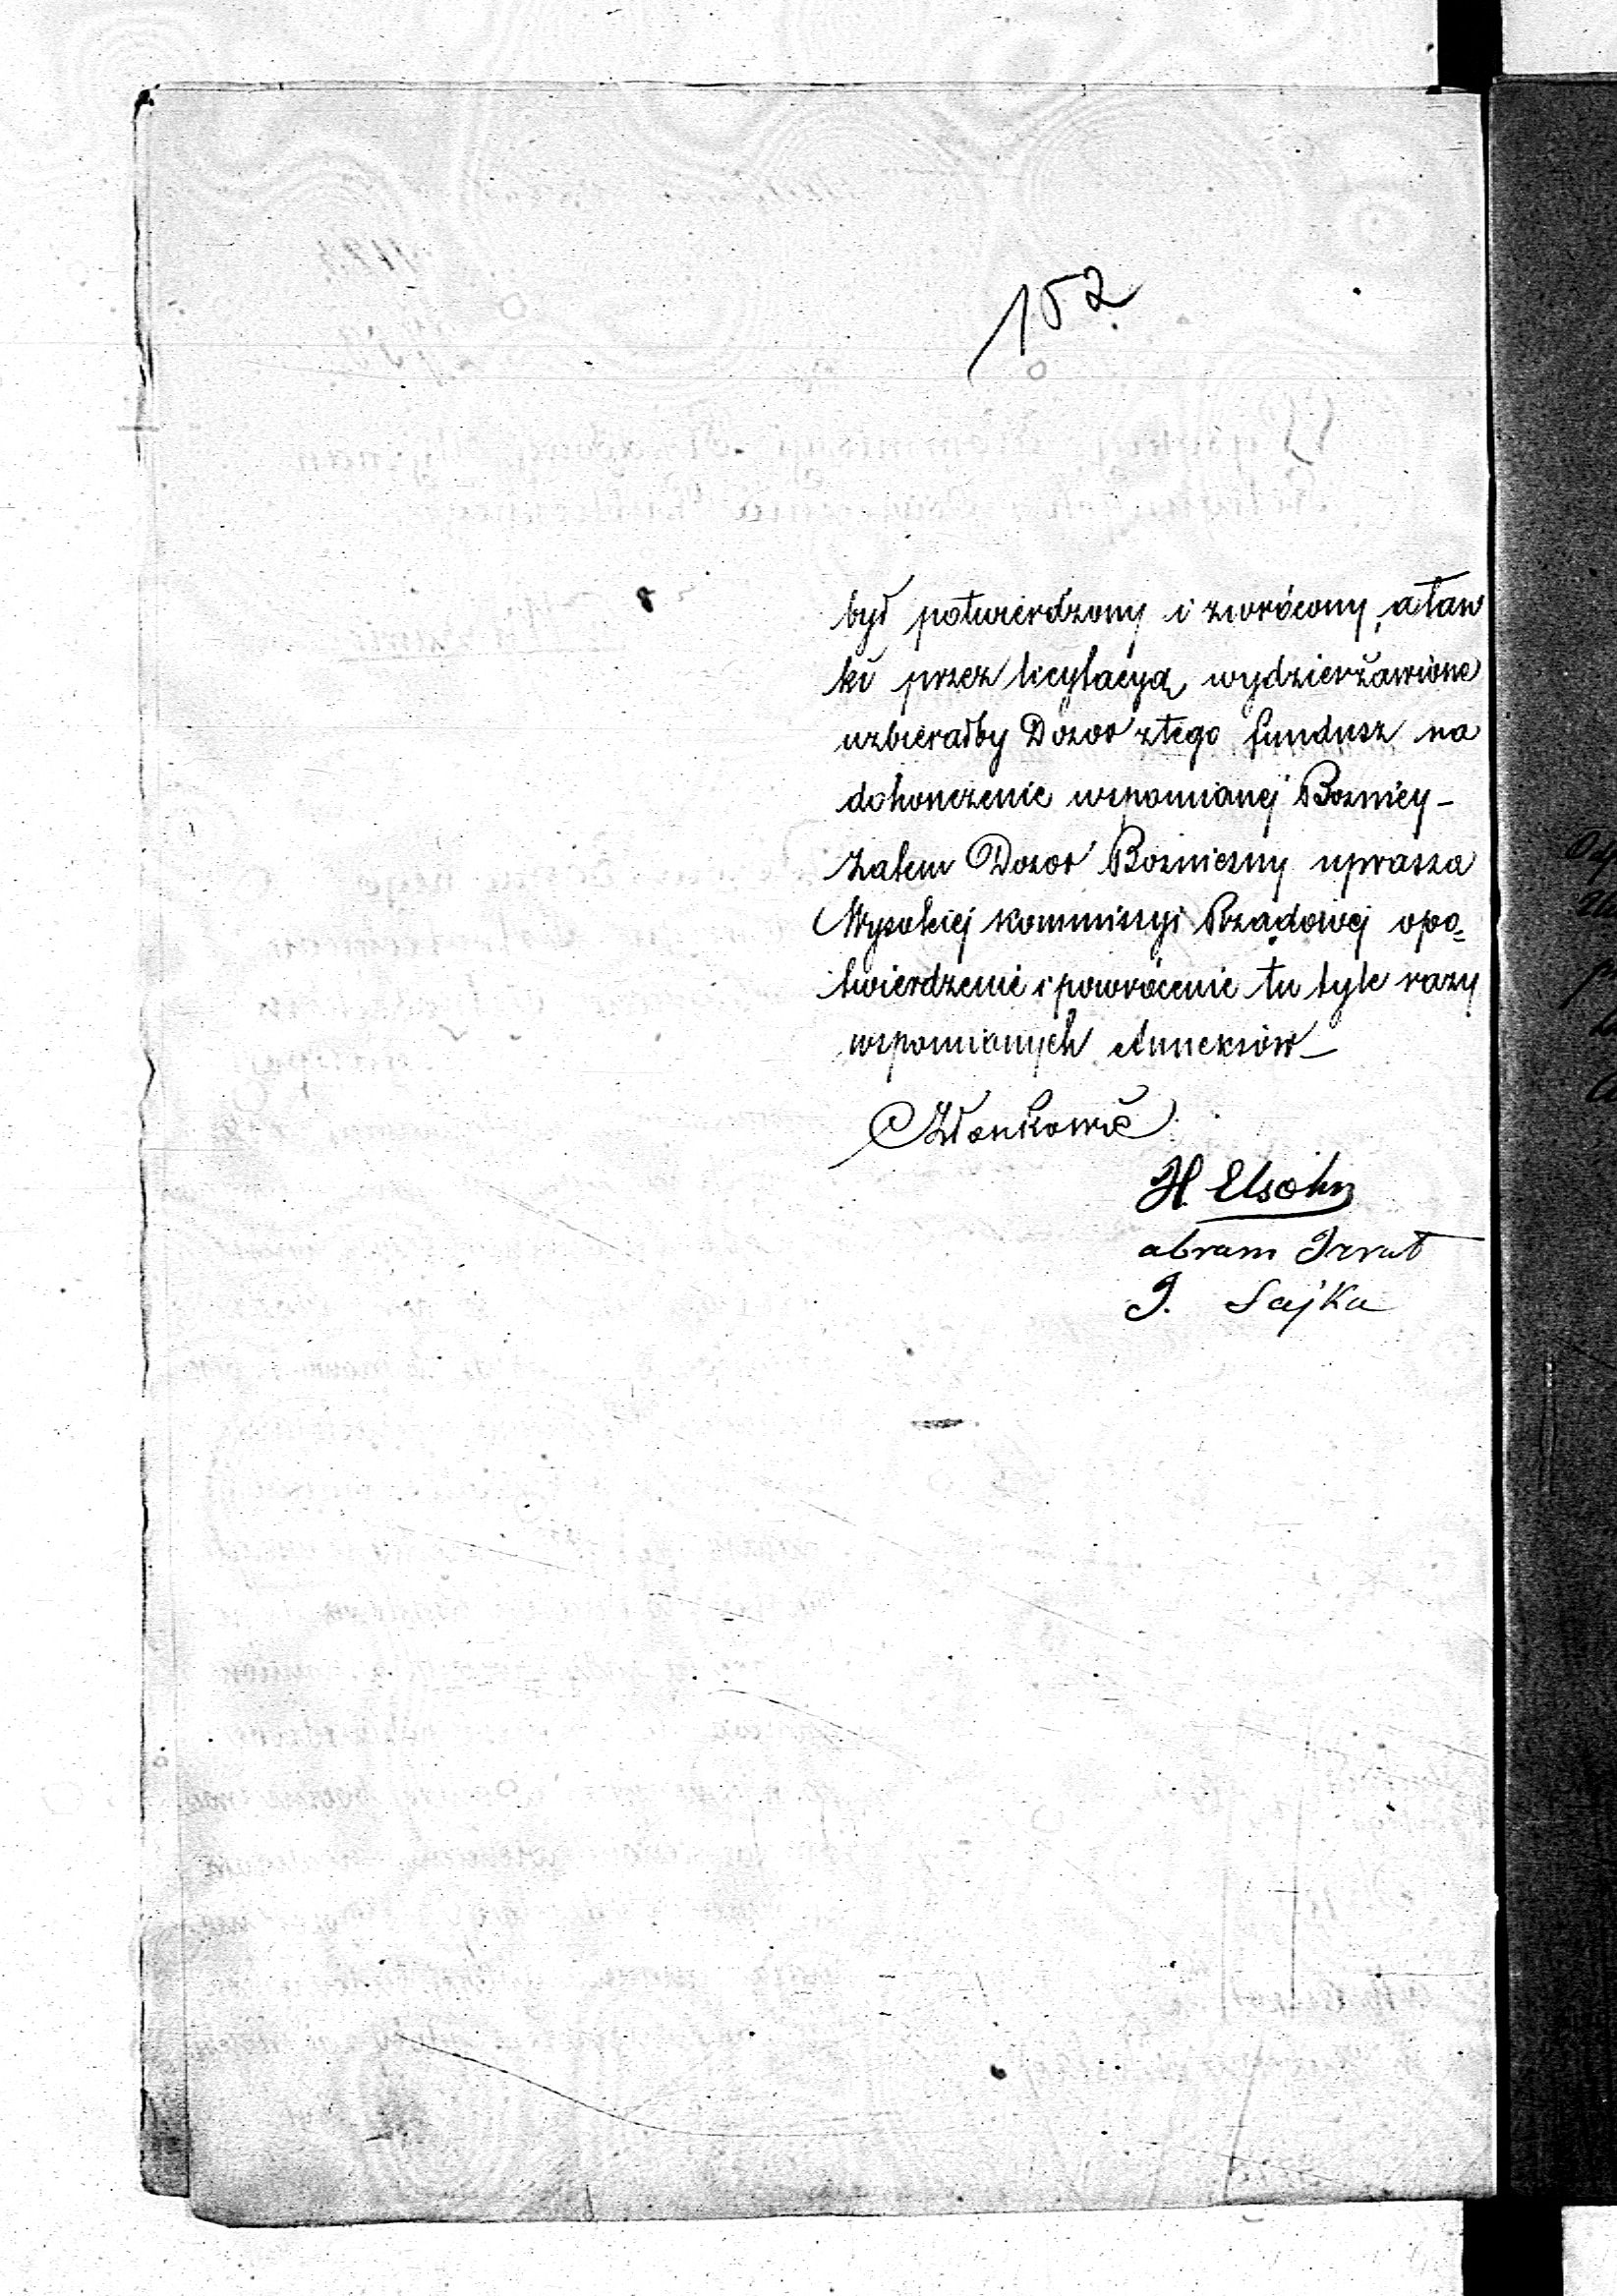 152
był potwierdzony i zwrócony, a ław
ki przez licytacyą wydzierżawione
uzbierałby Dozor z tego fundusz na
dokonczenie wspomianej Boznicy —
Zatem Dozor Bozniczny uprasza
Wysokiej Kommissyi Rządowej o po=
twierdzenie i powrócenie tu tyle razy
wspomianych Annexsów —
H. Elsohn
abram
J. Sajka